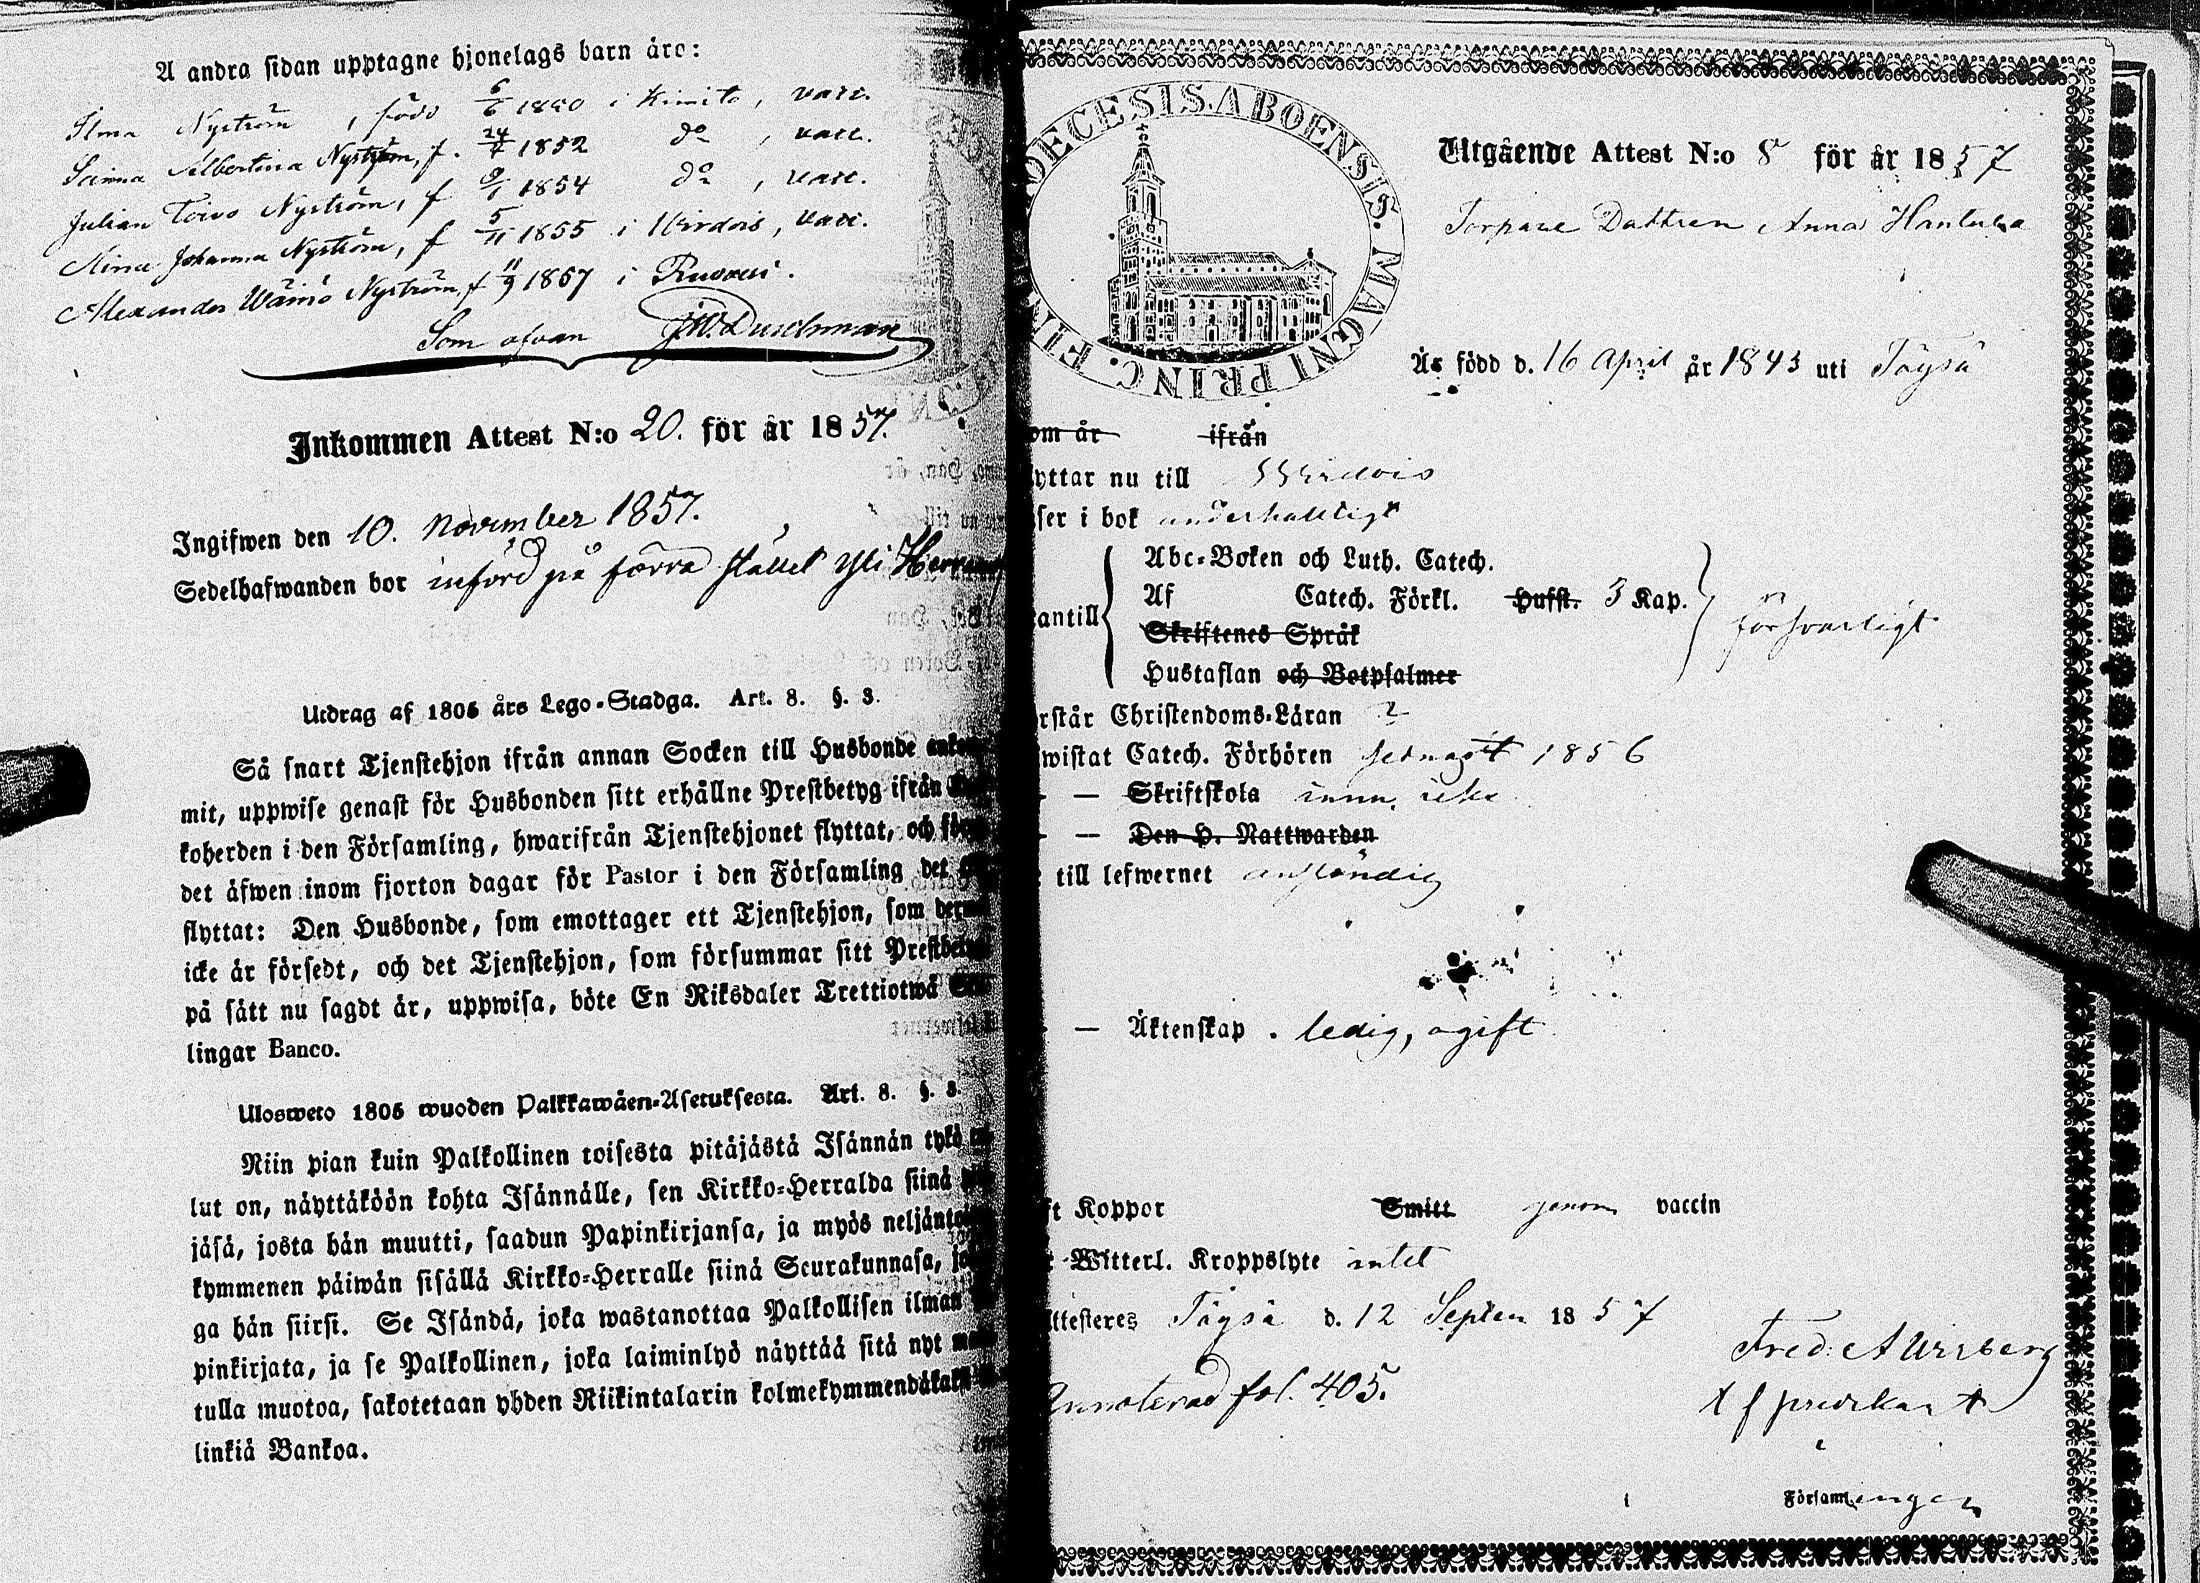 A andra sidan upptagne hjonelags barn äro:
Ilma Nyström, född 6/6 1850 i Kimito, vacc.
Saima Albertina Nyström, f. 24/4 1852 do, vacc.
Julian Toivo Nyström, f 9/1 1854 do, vacc.
Mina Johanna Nyström, f 5/11 1855 i Wirdois, vacc.
Alexander Wäinö Nyström, f 11/9 1857 i Ruovesi.
Som ofvan
Inkommen Attest N:o 20. för år 1857.
Ingifwen den 10. November 1857.
Sedelhafwanden bor införd på förra stället Yli
Utdrag af 1805 års Lego-Stadga. Art. 8. §. 3.
Så snart Tjenstehjon ifrån annan Socken till Husbonde
mit, uppwise genast för Husbonden sitt erhållne Prestbetyg ifrån
koherden i den Församling, hwarifrån Tjenstehjonet flyttat, och
det äfwen inom fjorton dagar för Pastor i den Församling det
flyttat: Den Husbonde, som emottager ett Tjenstehjon, som
icke är försedt, och det Tjenstehjon, som försummar sitt
på sätt nu sagdt är, uppwisa, böte En Riksdaler Trettiotwå
lingar Banco.
Ulosweto 1805 wuoden Palkkawäen-Asetuksesta. Art. 8. §. 3.
Niin pian kuin Palkollinen toisesta pitäjästä Isännän tykö
lut on, näyttäköön kohta Isännälle, sen Kirkko-Herralda siinä
jäsä, josta hän muutti, saadun Papinkirjansa, ja myös
kymmenen päiwän sisällä Kirkko-Herralle siinä Seurakunnasa,
ga hän siirsi. Se Isändä, joka wastanottaa Palkollisen ilman
pinkirjata, ja se Palkollinen, joka laiminlyö näyttää sitä nyt
tulla muotoa, sakotetaan yhden Riikintalarin
linkiä Bankoa.
DECESIS. ABOENSIS. MAGNI PRINC. FIN
Utgående Attest N:o 8 för år 1857
Torpare Dottren Anna
Är född d. 16 April år 1843 uti Töysä
om år ifrån
yttar nu till Wirdois
ser i bok underhaltligt
Abc-Boken och Luth. Catech.
Af Catech. Förkl. Hufst. 3 Kap.
antill försvarligt
Skriftenes Språk
Hustaflan och Botpsalmer
rstår Christendoms-Läran
wistat Catech. Förhören sednast 1856
— Skriftskola ännu icke
— Den H. Nattwarden
till lefwernet anständig
— Äktenskap . ledig, ogift
ft Koppor Smitt genom vaccin
Witterl. Kroppslyte intet
ttesteres Töysä d. 12 Septem 1857
Annoterad fol. 405.
i
Församlingen